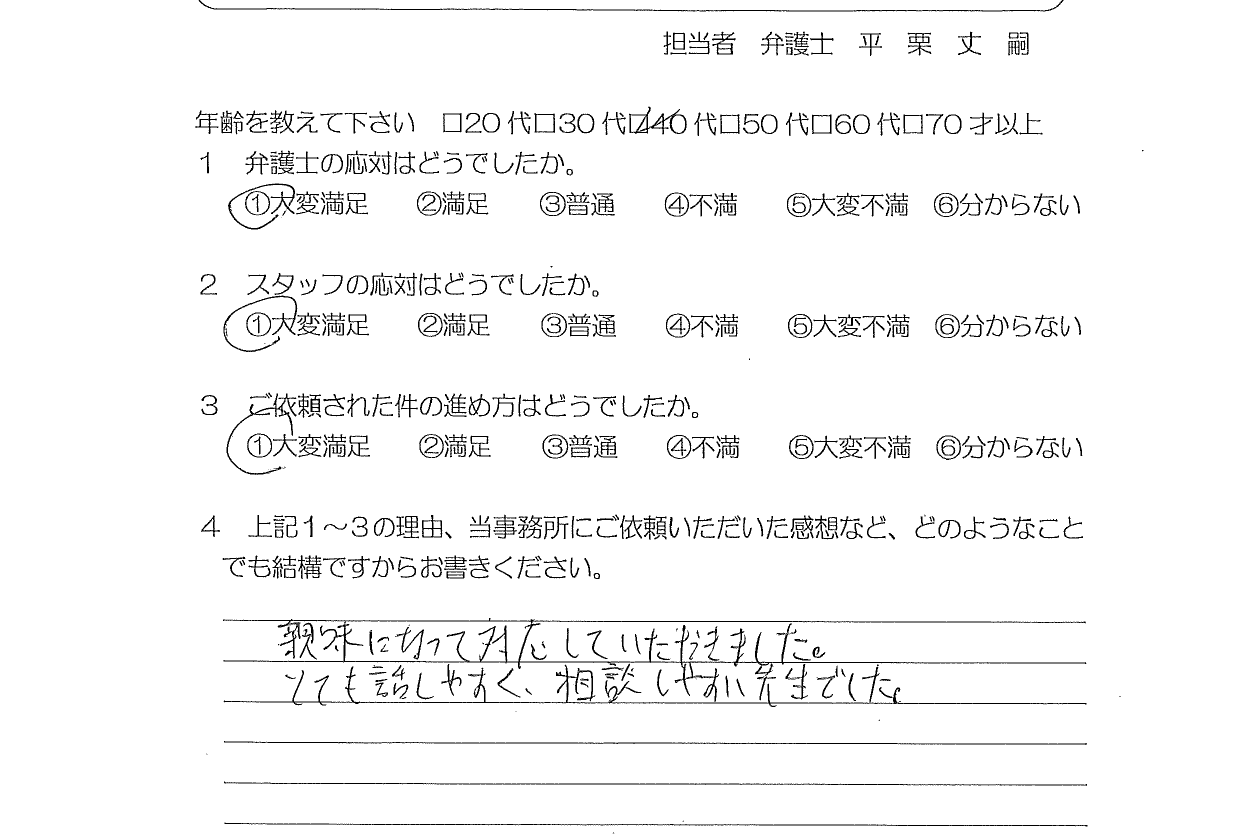 担当者 弁護士 平 栗 丈 嗣
年齢を教えて下さい □20代□30代□40代□50代□60代□70才以上
1 弁護士の応対はどうでしたか。
①大変満足 ②満足 ③普通 ④不満 ⑤大変不満 ⑥分からない
2 スタッフの応対はどうでしたか。
①大変満足 ②満足 ③普通 ④不満 ⑤大変不満 ⑥分からない
3 ご依頼された件の進め方はどうでしたか。
①大変満足 ②満足 ③普通 ④不満 ⑤大変不満 ⑥分からない
4 上記1~3の理由、当事務所にご依頼いただいた感想など、どのようなこと
でも結構ですからお書きください。
親味に切って対応していただきました。
とても話しやすく、相談しやすい先生でした。